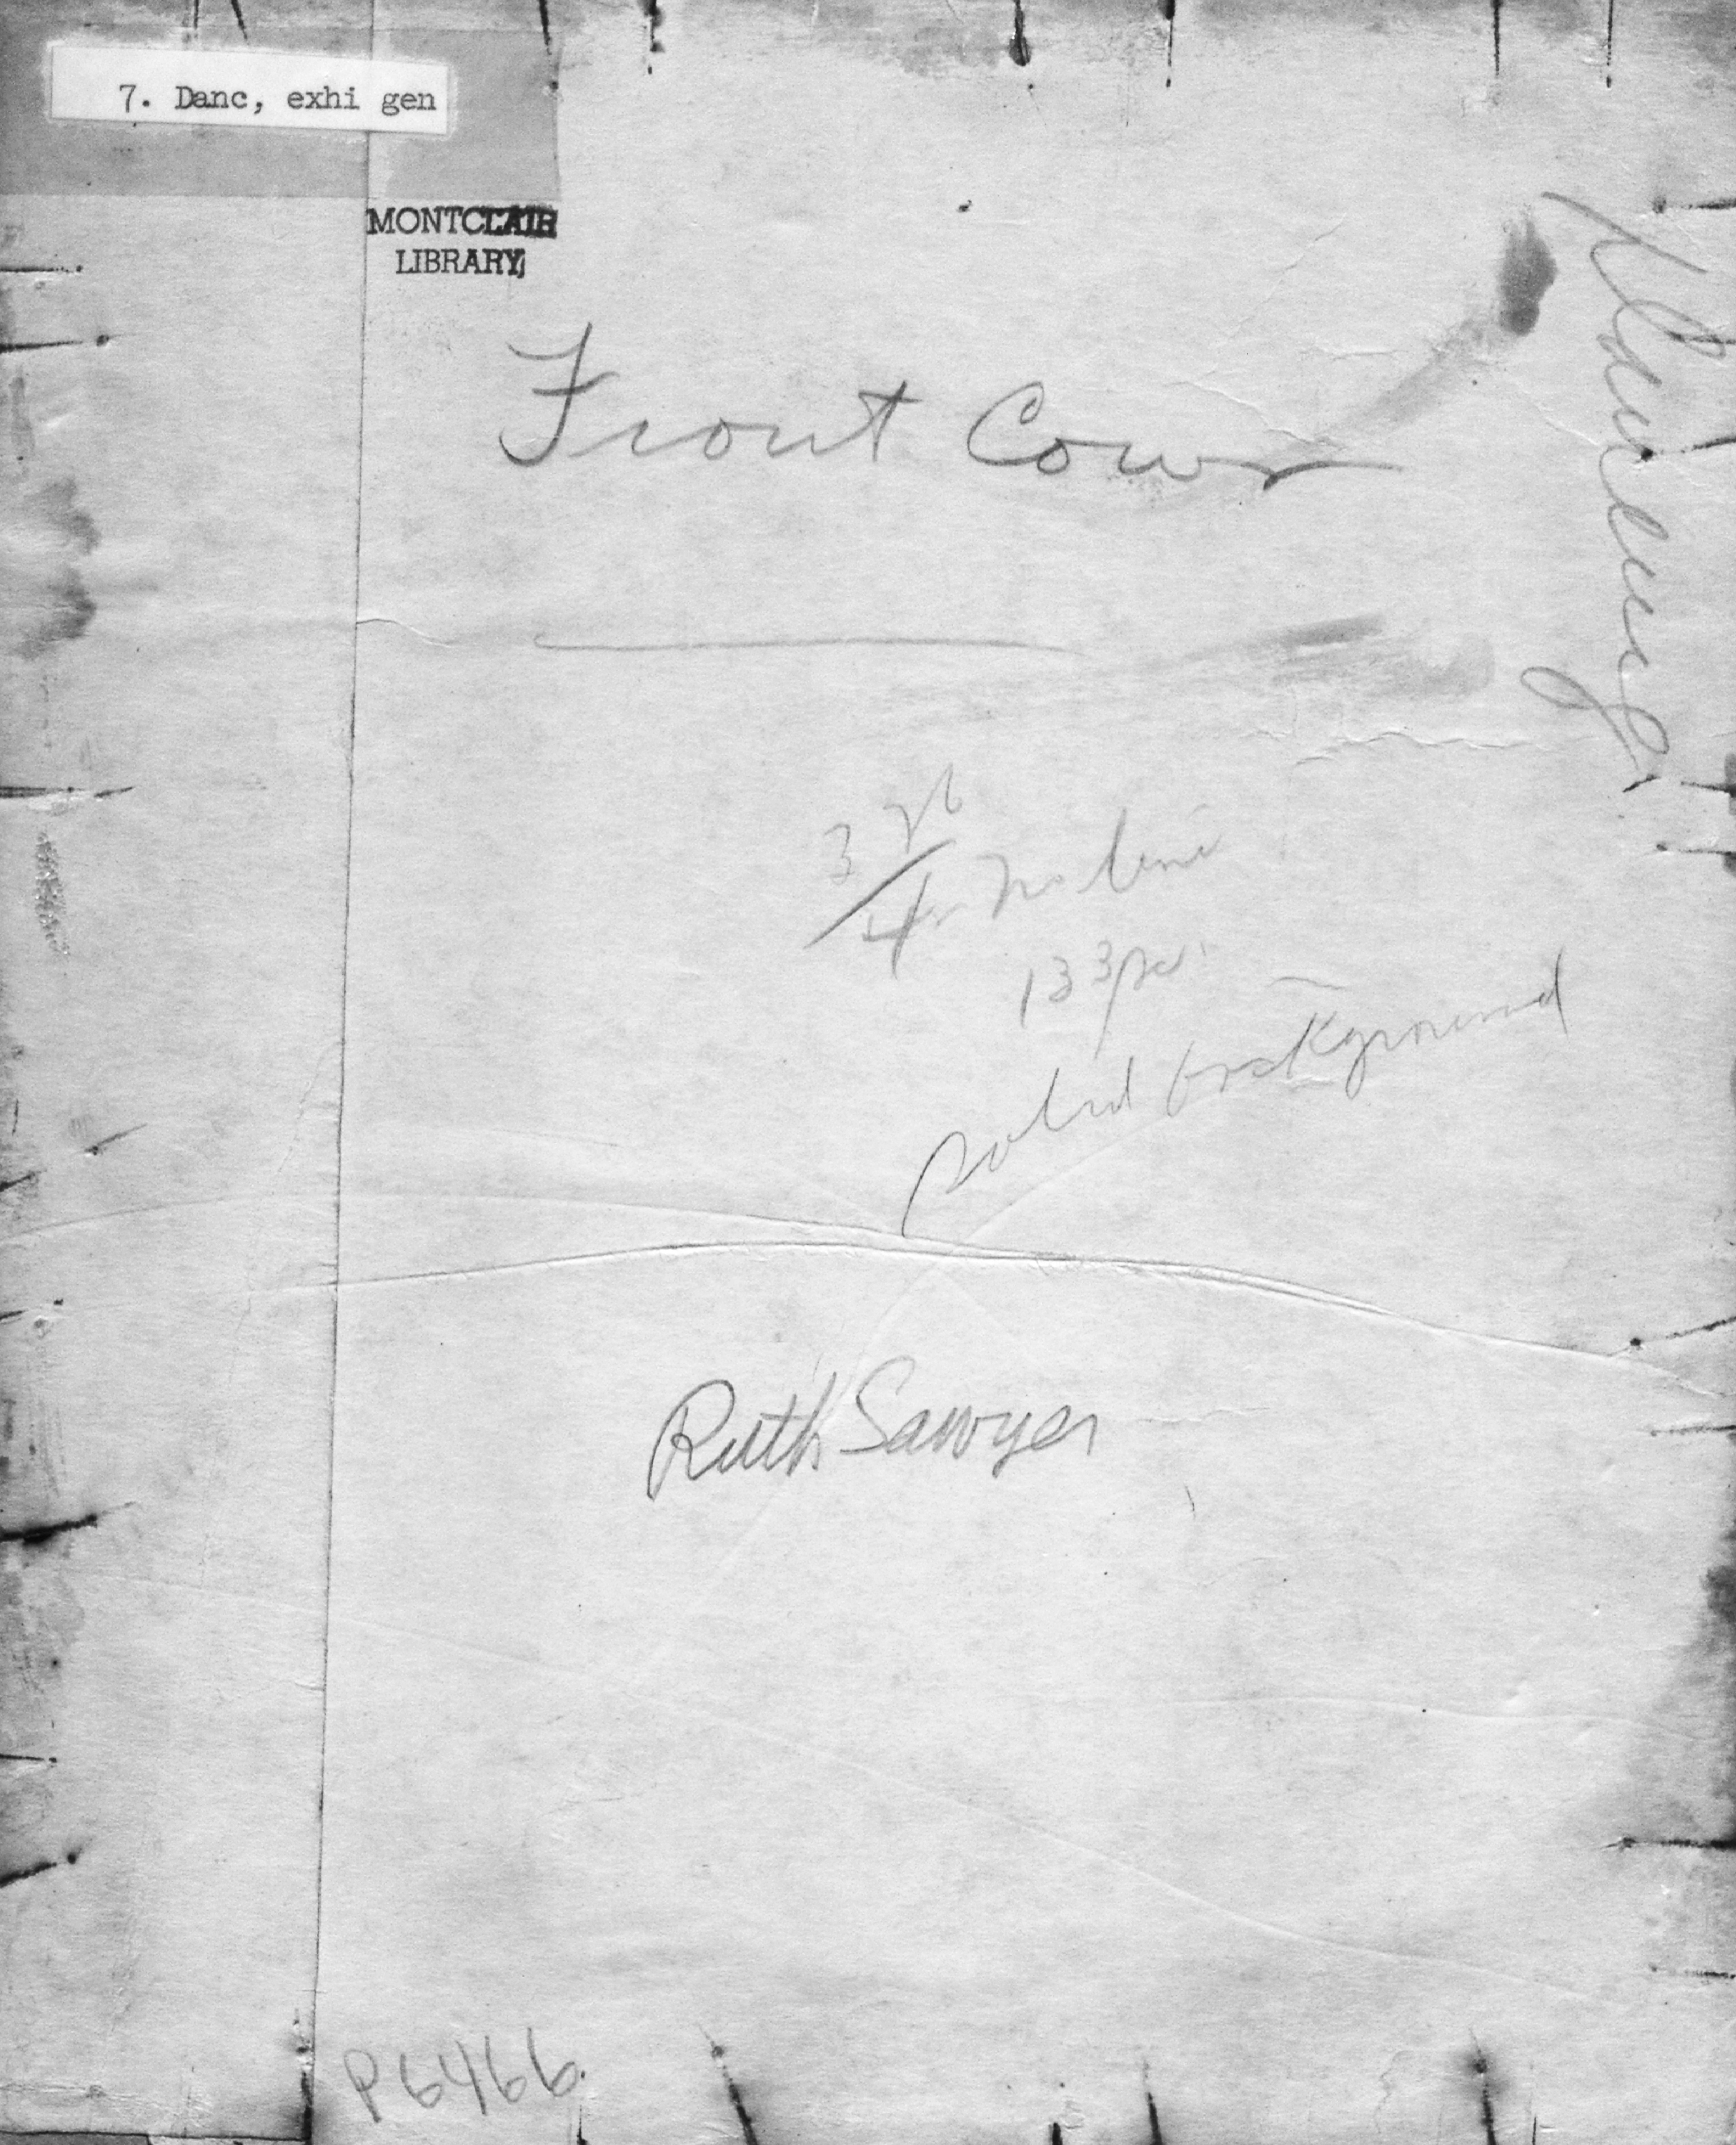 7. Danc, exhi gen
MONTCLAIR
LIBRARY
Front Cover
3
4 no line
133
solid background
Ruth Sawyer
P6466